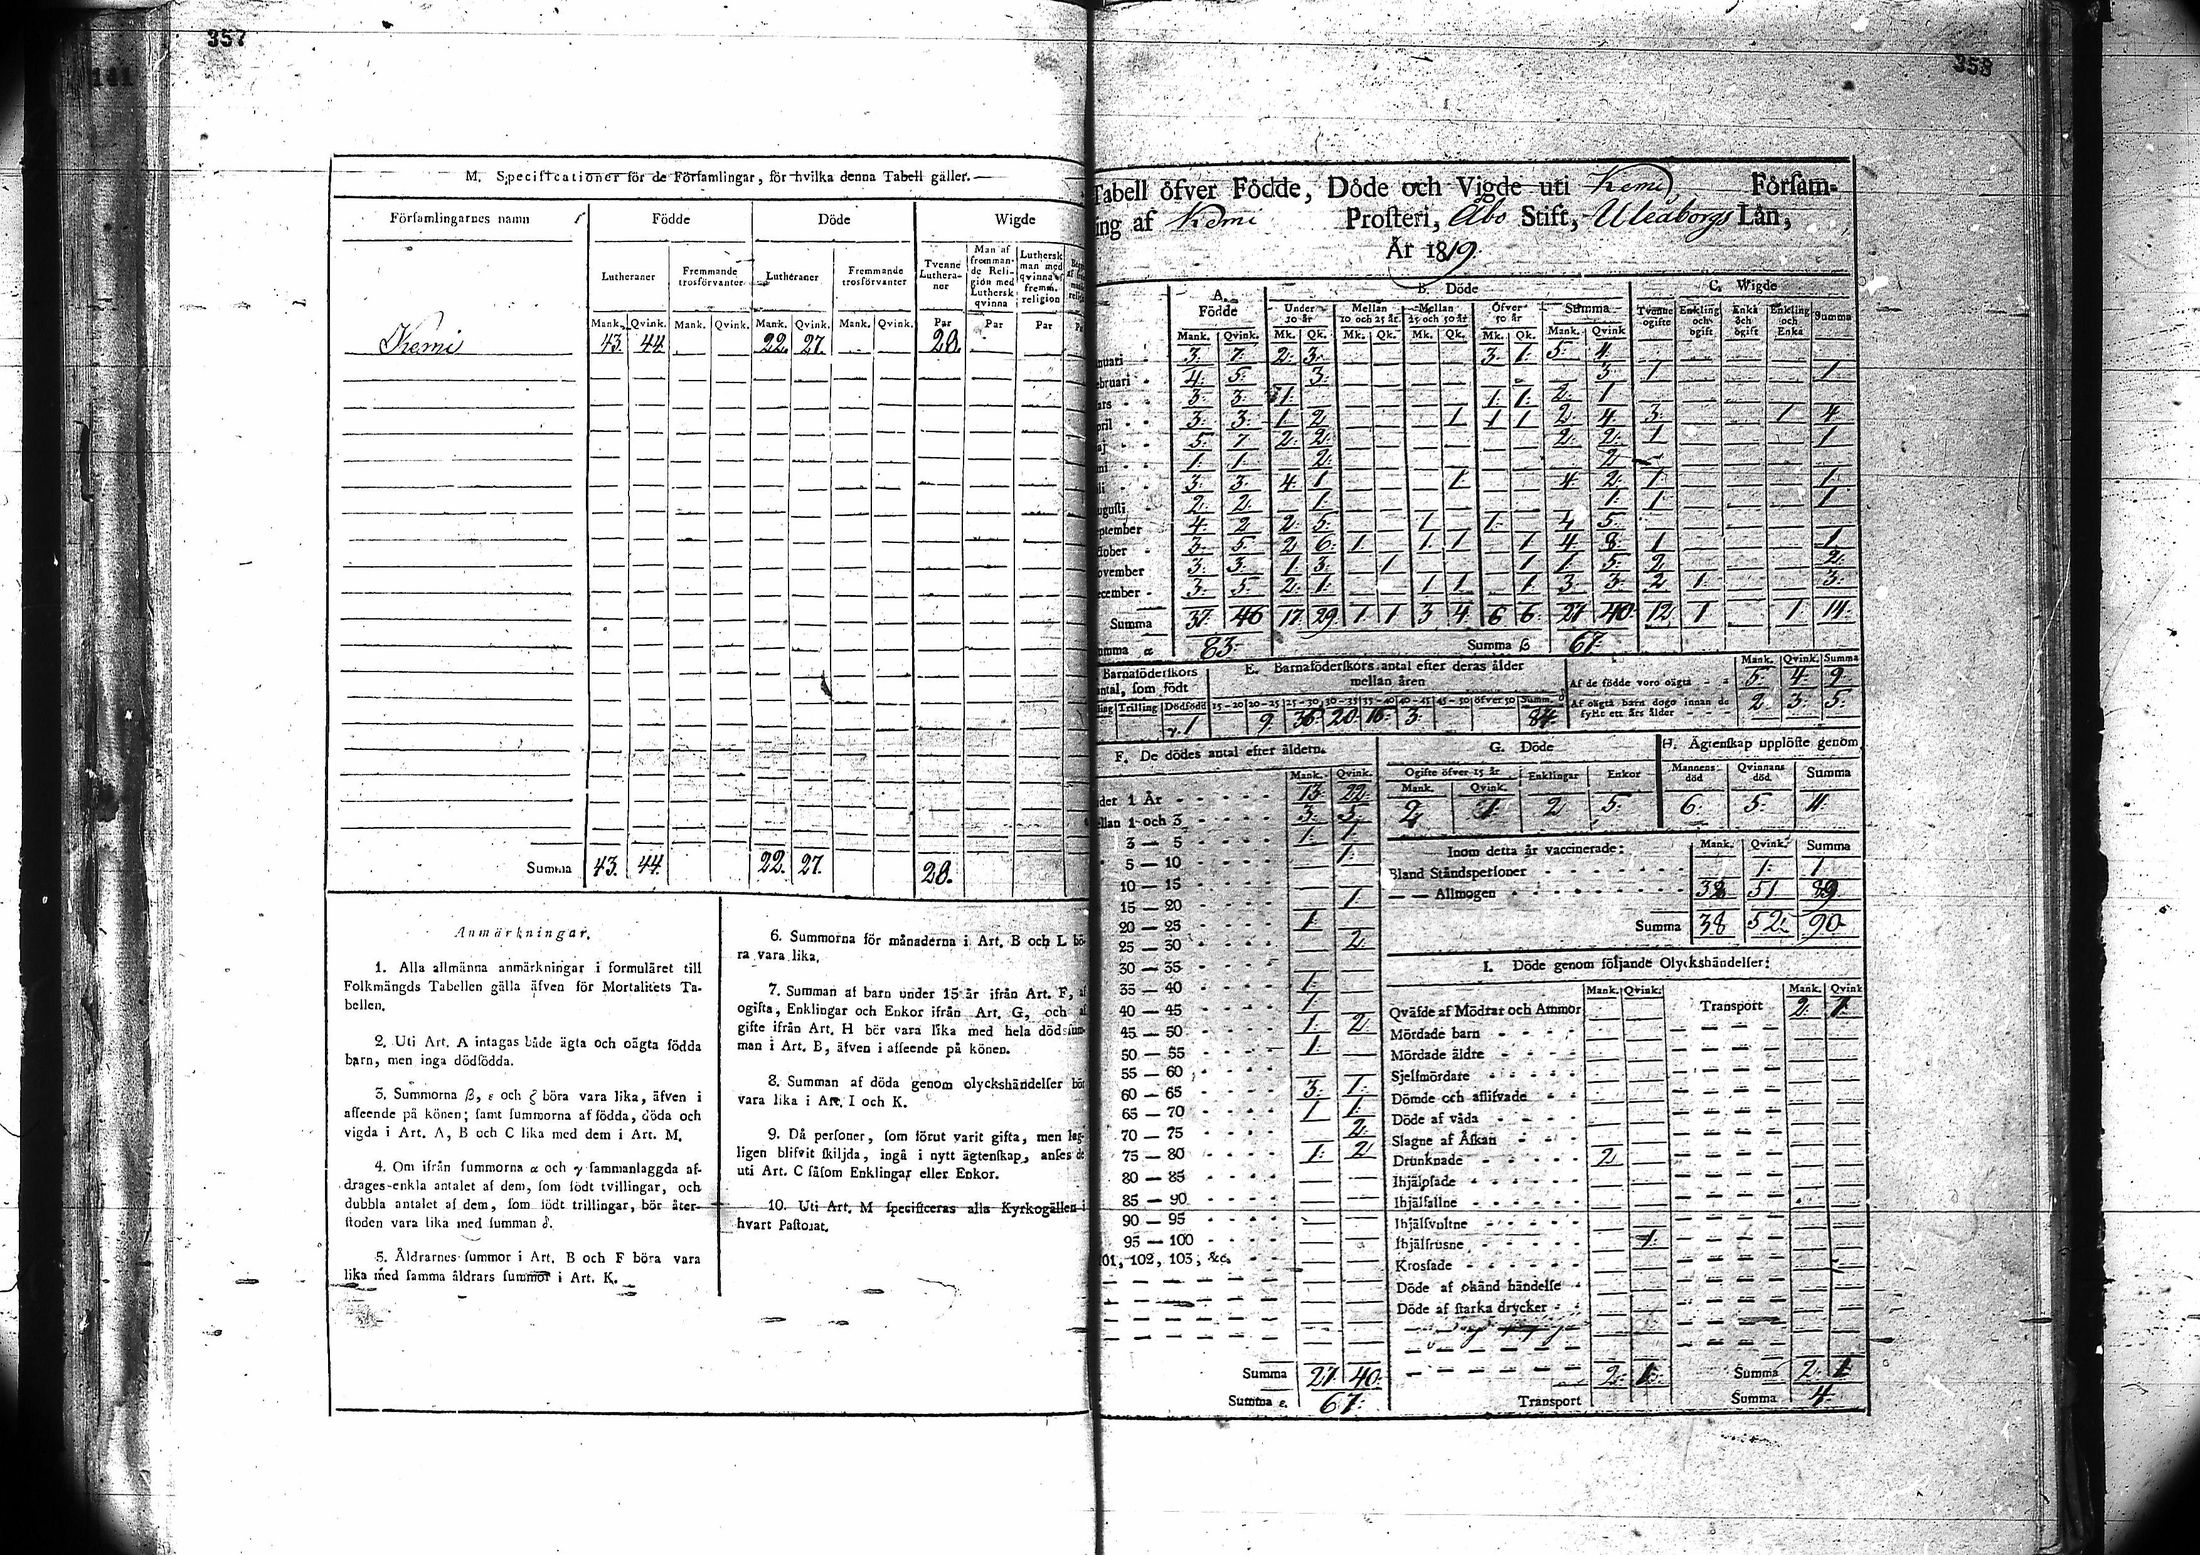 357
M. Specificationer för de Församlingar, för hvilka denna Tabell gäller.
Församlingarnes namn Födde Döde Wigde
Lutheraner Fremmande trosförvanter Lutheraner Fremmande trosförvanter Tvenne Lutheraner Man af fremmande Religion med Luthersk qvinna Luthersk man med qvinna af fremm. religion
Mank. Qvink. Mank. Qvink. Mank. Qvink. Mank. Qvink. Par Par Par
Kemi 43. 44. 22. 27. 20.
Summa 43. 44. 22. 27. 20.
Anmärkningar.
1. Alla allmänna anmärkningar i formuläret till
Folkmängds Tabellen gälla äfven för Mortalitets Ta-
bellen.
2. Uti Art. A intagas både ägta och oägta födda
barn, men inga dödfödda.
3. Summorna β, ε och ζ böra vara lika, äfven i
afseende på könen; samt summorna af födda, döda och
vigda i Art. A, B och C lika med dem i Art. M.
4. Om ifrån summorna α och γ sammanlaggda af-
drages enkla antalet af dem, som födt tvillingar, och
dubbla antalet af dem, som födt trillingar, bör åter-
stoden vara lika med summan δ.
5. Åldrarnes summor i Art. B och F böra vara
lika med samma åldrars summor i Art. K.
6. Summorna för månaderna i Art. B och L bö-
ra vara lika.
7. Summan af barn under 15 år ifrån Art. F, af
ogifta, Enklingar och Enkor ifrån Art. G, och af
gifte ifrån Art. H bör vara lika med hela dödsum-
man i Art. B, äfven i afseende på könen.
8. Summan af döda genom olyckshändelser bör
vara lika i Art. I och K.
9. Då personer, som förut varit gifta, men lag-
ligen blifvit skiljda, ingå i nytt ägtenskap, anses de
uti Art. C såsom Enklingar eller Enkor.
10. Uti Art. M specificeras alla Kyrkogällen i
hvart Pastorat.
358
Tabell öfver Födde, Döde och Vigde uti Kemi Försam-
ing af Kemi Prosteri, Åbo Stift, Uleåborgs Län,
År 1819.
A. Födde B. Döde C. Wigde
Under 10 år Mellan 10 och 25 år Mellan 25 och 50 år Öfver 50 år Summa Tvenne ogifte Enkling och ogift Enka och ogift Enkling och Enka Summa
Mank. Qvink. Mk. Qk. Mk. Qk. Mk. Qk. Mk. Qk. Mank. Qvink
nuari 3. 7. 2. 3. 3. 1. 5. 4.
ebruari 4. 5. 3. 3. 1. 1.
ars 3. 3. 1. 1. 1. 2. 1
pril 3. 3. 1. 2 1 1 1 2 4. 3. 1 4.
aj 5. 7 2. 2. 2. 2. 1 1
ni 1. 1. 2. 2.
li 3. 3. 4. 1 1. 4. 2. 1. 1.
ugusti 2. 2. 1. 1. 1. 1
eptember 4. 2 2. 5. 1. 1. 4 5.
ctober 3. 5. 2 6. 1. 1. 1 1 4. 8. 1 1
ovember 3. 3. 1 3. 1 1 1. 5. 2. 2.
ecember 3. 5. 2. 1. 1 1 1. 3 3. 2. 1. 3.
Summa 37. 46 17. 29 1 1 3 4. 6 6 27 40. 12 1 1. 14.
umma α 83. Summa β 67.
Barnaföderskors
antal, som födt
Trilling Dödfödd
1
E. Barnaföderskors antal efter deras ålder
mellan åren
15—20 20—25 25—30 30—35 35—40 40—45 45—50 öfver 50 Summa δ
9. 36. 20. 16. 3. 84.
Mank. Qvink. Summa
Af de födde voro oägta 5. 4. 9.
Af oägta barn dogo innan de fyllt ett års ålder 2. 3. 5.
F. De dödes antal efter åldern.
Mank. Qvink.
der 1 År 13. 22.
llan 1 och 3 3. 5.
3 — 5 1. 1.
5 — 10 1.
10 — 15
15 — 20 1.
20 — 25 1.
25 — 30 2.
30 — 35
35 — 40 1.
40 — 45 1.
45 — 50 1. 2.
50 — 55 1.
55 — 60
60 — 65 3. 1.
65 — 70 1 1.
70 — 75 2.
75 — 80 1. 2
80 — 85
85 — 90
90 — 95
95 — 100
101, 102, 103, &c.
Summa 27. 40.
Summa ε. 67.
G. Döde
Ogifte öfver 15 år Enklingar Enkor
Mank. Qvink.
2 1. 2 5.
H. Ägtenskap upplöste genom
Mannens död Qvinnans död Summa
6. 5. 11.
Inom detta år vaccinerade: Mank. Qvink. Summa
Bland Ståndspersoner 1. 1
— — Allmogen 38 51 89
Summa 38 52. 90
I. Döde genom följande Olyckshändelser:
Mank. Qvink. Mank. Qvink
Qväfde af Mödrar och Ammor Transport 2. 1.
Mördade barn
Mördade äldre
Sjelfmördare
Dömde och aflifvade
Döde af våda
Slagne af Åskan
Drunknade 2
Ihjälpsade
Ihjälfallne
Ihjälsvultne
Ihjälfrusne 1.
Krossade
Döde af okänd händelse
Döde af starka drycker
2. 1. Summa 2. 1.
Transport Summa 4.